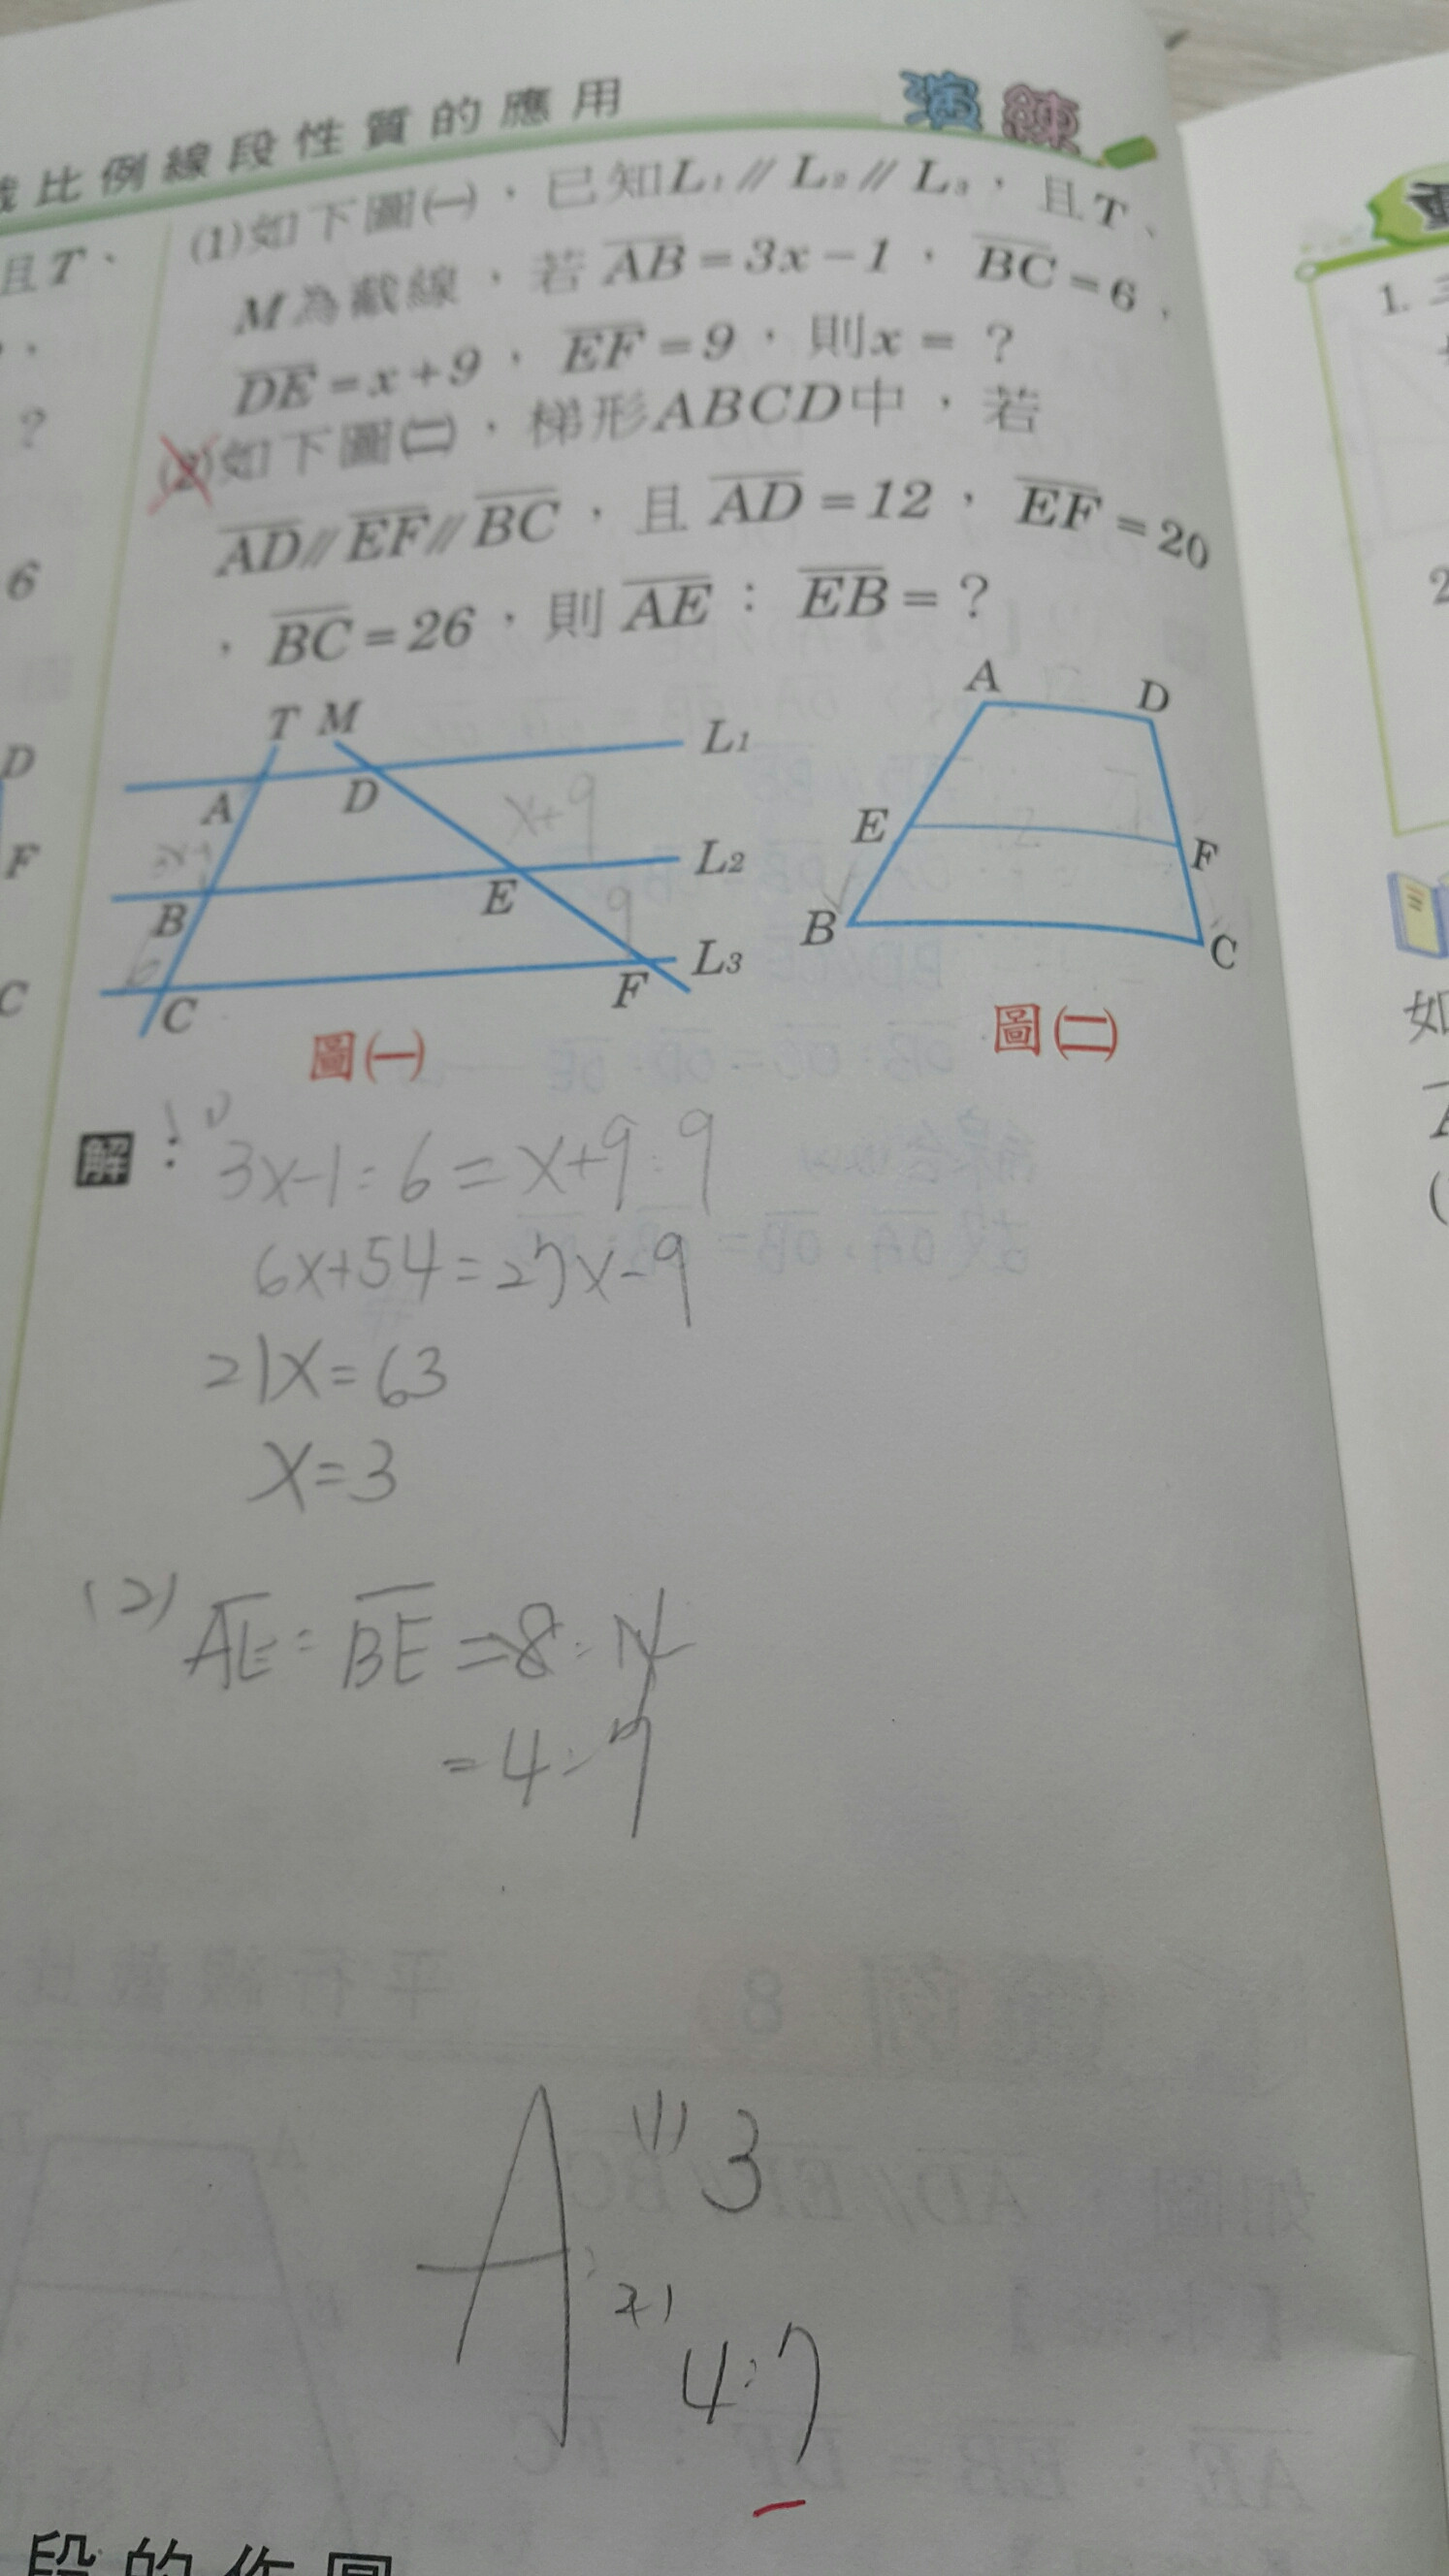 比例線段性質的應用
演練
且T、
?
6
D
F
C
(1)如下圖㈠，已知L1∥L2∥L3，且T、
M為截線，若AB=3x-1，BC=6，
DE=x+9，EF=9，則x=？
(2)如下圖㈡，梯形ABCD中，若
AD∥EF∥BC，且AD=12，EF=20
，BC=26，則AE：EB=？
T M
L1
A
D
x+9
L2
B
E
9
6
L3
C
F
圖㈠
A
D
E
F
B
C
圖㈡
1.
2
如
解：
3x-1:6=x+9:9
6x+54=27x-9
21x=63
x=3
(2) AE:BE=8:14
=4:7
A:(1) 3
(2) 4:7
段的作圖